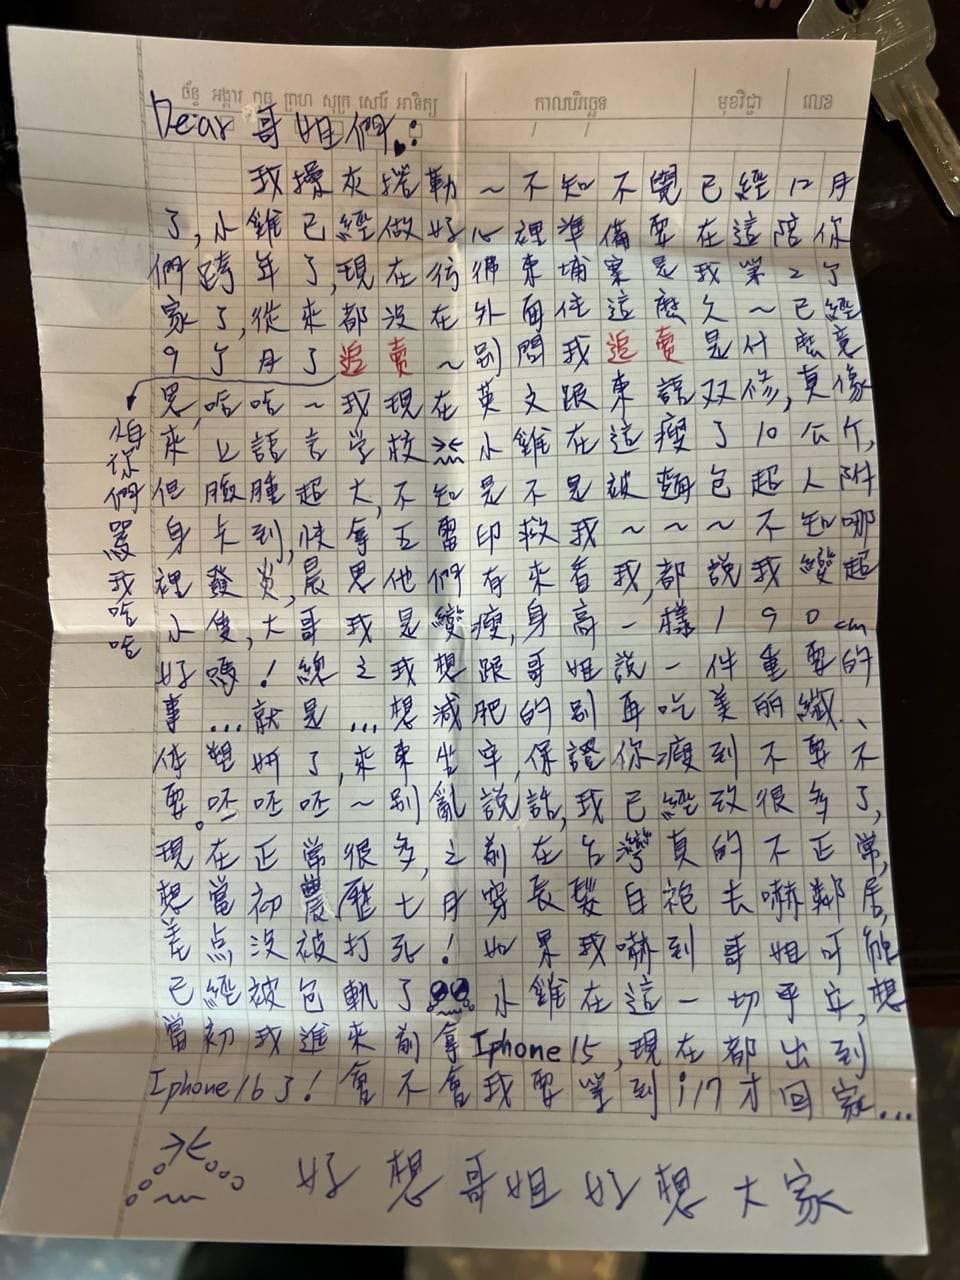 ច័ន្ទ អង្គារ ពុធ ព្រហ សុក្រ សៅរ៍ អាទិត្យ កាលបរិច្ឆេទ មុខវិជ្ជា លេខ
Dear 哥姐們
我操灰捲勒～不知不覺已經12月
了,小雞已經做好心裡準備要在這陪你
們跨年了,現在彷彿柬埔寨是我第2个
家了,從來都沒在外面住這麼久～已經
9个月了追賣～別問我追賣是什麼意
思,哈哈～我現在英文跟柬語双修,真像
來上語言学校 小雞在這瘦了10公斤,
但臉腫超大,不知是不是被麵包超人附
身卡到,快拿五雷印救我～～～不知哪
裡發炎,晨思他們有來看我,都說我變超
小隻,大哥我是變瘦,身高一樣190cm
好嗎!總之我想跟哥姐說一件重要的
事...就是...想減肥的別再吃美丽纖、
俏塑妍了,來柬坐牢,保證你瘦到不要不
要。呸呸呸～別亂說話,我已經改很多了,
現在正常很多,之前在台灣真的不正常,
想當初農歷七月穿長髮白袍去嚇鄰居,
差点沒被打死!如果我嚇到哥姐可能
已經被包軌了 小雞在這一切平安,想
當初我進來前拿Iphone 15,現在都出到
Iphone 16了!會不會我要等到i17才回家...
怕你們罵我哈哈
好想哥姐好想大家